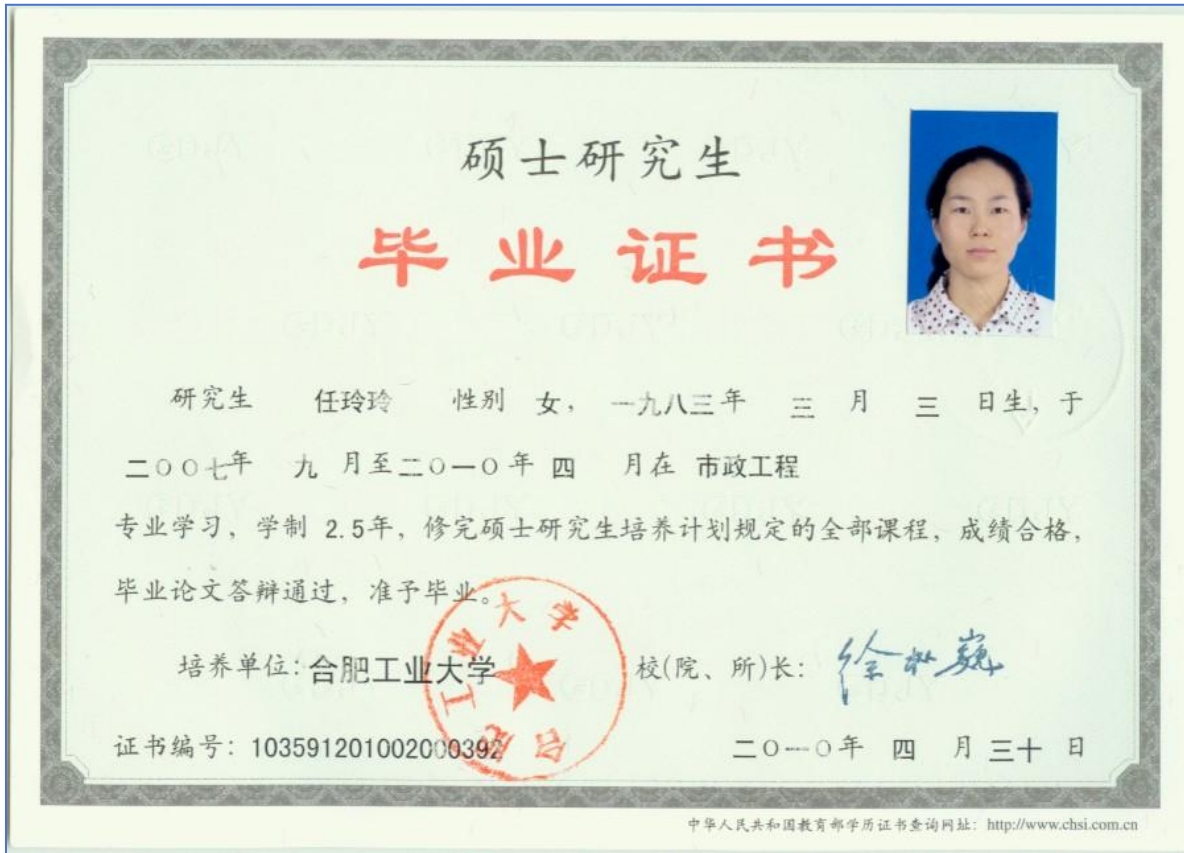 硕士研究生
毕业证书
研究生 任玲玲 性别 女， 一九八三年 三 月 三 日生，于
二〇〇七年 九 月至二〇一〇年 四 月在 市政工程
专业学习，学制 2.5年，修完硕士研究生培养计划规定的全部课程，成绩合格，
毕业论文答辩通过，准予毕业。
合肥工业大学
培养单位：合肥工业大学 校(院、所)长：
证书编号：103591201002000392 二〇一〇年 四 月 三十 日
中华人民共和国教育部学历证书查询网址：http://www.chsi.com.cn